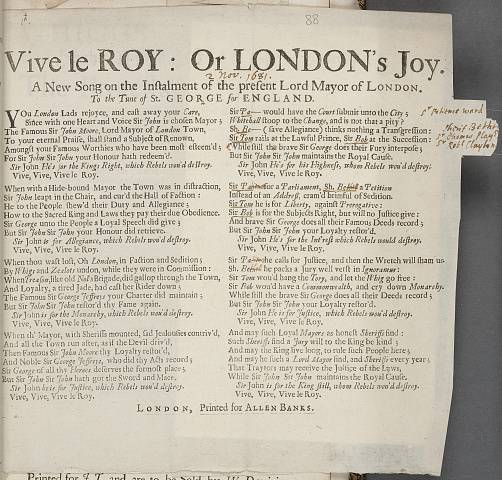 88
Vive le ROY: Or LONDON's Joy.
2 Nov. 1681.
A New Song on the Instalment of the present Lord Mayor of LONDON.
To the Tune of St. GEORGE for ENGLAND.
YOu London Lads rejoyce, and cast away your Care,
Since with one Heart and Voice Sir John is chosen Mayor;
The Famous Sir John Moore, Lord Mayor of London Town,
To your eternal Praise, shall stand a Subject of Renown,
Amongst your Famous Worthies who have been most esteem'd;
For Sir John Sir John your Honour hath redeem'd.
Sir John He's for the Kings Right, which Rebels wou'd destroy.
Vive, Vive, Vive le Roy.
When with a Hide-bound Mayor the Town was in distraction,
Sir John leapt in the Chair, and cur'd the Hall of Faction:
He to the People shew'd their Duty and Allegiance;
How to the Sacred King and Laws they pay their due Obedience.
Sir George unto the People a Loyal Speech did give;
But Sir John Sir John your Honour did retrieve.
Sir John is for Allegiance, which Rebels wou'd destroy.
Vive, Vive, Vive le Roy.
When thou wast lost, Oh London, in Faction and Sedition;
By Whigs and Zealots undon, while they were in Commission:
When Treason, like old Nol's Brigade, did gallop through the Town,
And Loyalty, a tired Jade, had cast her Rider down;
The Famous Sir George Jeffreys your Charter did maintain;
But Sir John Sir John restor'd thy Fame again.
Sir John is for the Monarchy, which Rebels wou'd destroy.
Vive, Vive, Vive le Roy.
When th' Mayor, with Sheriffs mounted, sad Jealousies contriv'd,
And all the Town run after, as if the Devil driv'd,
Then Famous Sir John Moore thy Loyalty restor'd,
And Noble Sir George Jeffreys, who did thy Acts record;
Sir George of all thy Heroes deserves the formost place;
But Sir John Sir John hath got the Sword and Mace.
Sir John he is for Justice, which Rebels wou'd destroy.
Vive, Vive, Vive le Roy.
Sir Pa— would have the Court submit unto the City;
Whitehall stoop to the Change, and is not that a pity?
Sh. Be— (save Allegiance) thinks nothing a Transgression:
Sir Tom rails at the Lawful Prince, Sir Bob at the Succession:
While still the brave Sir George does their Fury interpose;
But Sir John Sir John maintains the Royal Cause.
Sir John He's for his Highness, whom Rebels wou'd destroy.
Vive, Vive, Vive le Roy.
Sir Pa— for a Parliament, Sh. Be— a Petition
Instead of an Address, cram'd brimful of Sedition.
Sir Tom he is for Liberty, against Prerogative:
Sir Bob is for the Subjects Right, but will no Justice give:
And brave Sir George does all their Famous Deeds record;
But Sir John Sir John your Loyalty restor'd.
Sir John He's for the Int'rest which Rebels would destroy.
Vive, Vive, Vive le Roy.
Sir Pa— he calls for Justice, and then the Wretch will sham us:
Sh. Be— he packs a Jury well vers'd in Ignoramus:
Sir Tom wou'd hang the Tory, and let the Whig go free:
Sir Bob wou'd have a Commonwealth, and cry down Monarchy.
While still the brave Sir George does all their Deeds record;
But Sir John Sir John your Loyalty restor'd.
Sir John He is for Justice, which Rebels wou'd destroy.
Vive, Vive, Vive le Roy.
And may such Loyal Mayors as honest Sheriffs find:
Such Sheriffs find a Jury will to the King be kind;
And may the King live long, to rule such People here;
And may he such a Lord Mayor find, and Sheriffs every year;
That Traytors may receive the Justice of the Laws,
While Sir John Sir John maintains the Royal Cause.
Sir John is for the King still, whom Rebels wou'd destroy.
Vive, Vive, Vive le Roy.
LONDON, Printed for ALLEN BANKS.
Sr Patience ward
Sr Thomas Player
Sr Robt Clayton